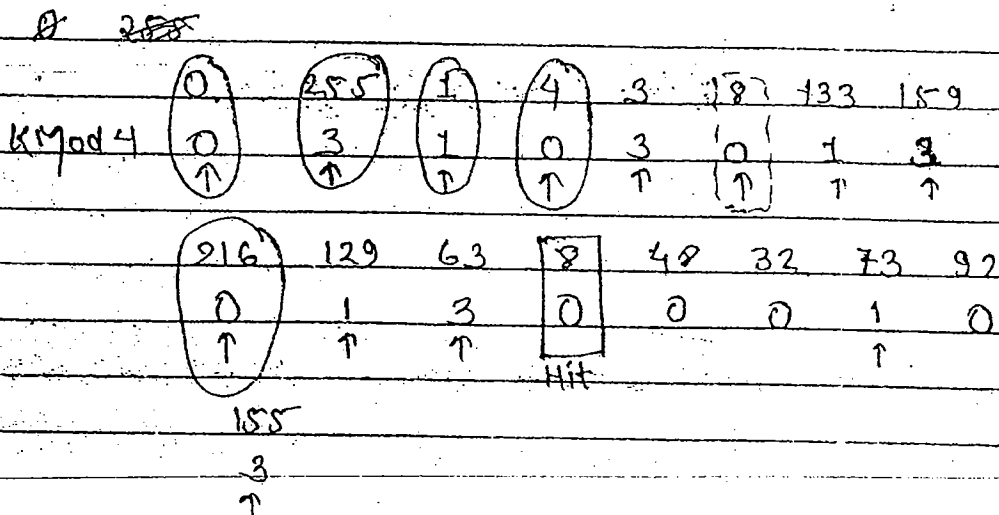 0 255 1 4 3 8 133 159
KMod 4 0 3 1 0 3 0 1 3
↑ ↑ ↑ ↑ ↑ ↑ ↑ ↑
216 129 63 8 48 32 73 92
0 1 3 0 0 0 1 0
↑ ↑ ↑ Hit ↑
155
3
↑